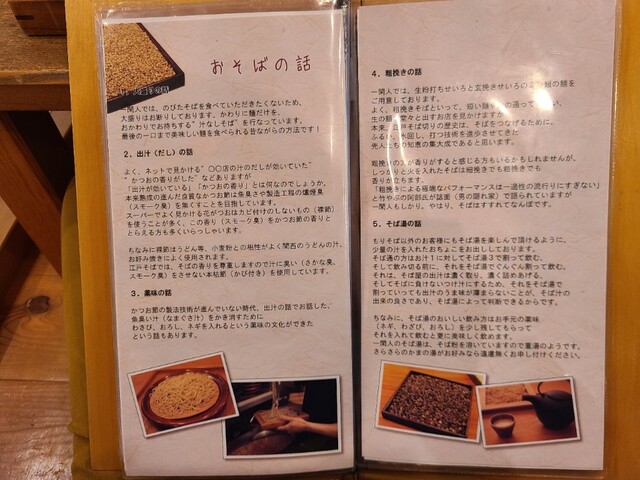 おそばの話
の話
一関人では、のびたそばを食べていただきたくないため、
大盛りはお断りしております、かわりに麺だけを、
おかわりでお持ちする"汁なしそば"を行なっています。
最後の一口まで美味しい麺を食べられる昔ながらの方法です!
2．出汁（だし）の話
よく、ネットで見かける"〇〇店の汁のだしが効いていた"
"かつおの香りがした"などありますが
「出汁が効いている」「かつおの香り」とは何なのでしょうか。
本来熟成の進んだ良質なかつお節は魚臭さや製造工程の燻煙臭
（スモーク臭）を無くすことを目指しています。
スーパーでよく見かける花がつおはカビ付けのしないもの（裸節）
を使うことが多く、この香り（スモーク臭）をかつお節の香りと
とらえる方も多くいらっしゃいます。
ちなみに裸節はうどん等、小麦粉との相性がよく関西のうどんの汁、
お好み焼きによく使用されます。
江戸そばでは、そばの香りを尊重しますので汁に臭い（さかな臭、
スモーク臭）をさせない本枯節（かび付き）を使用しています。
3．薬味の話
かつお節の製法技術が進んでいない時代、出汁の話でお話した、
魚臭い汁（なまぐさ汁）をかき消すために
わさび、おろし、ネギを入れるという薬味の文化ができた
という話もあります。
4．粗挽きの話
一関人では、生粉打ちせいろと玄挽きせいろの 短の麺を
ご用意しております。
よく、粗挽きそばといって、短い 通って
生の 々と出すお店を見かけますが
本来、江戸そば切りの歴史は、そばをつなげるために、
ふるい、水回し、打つ技術を進歩させてきた
先人たちの知恵の集大成であると思います。
粗挽きの方が香りがすると感じる方もいるかもしれませんが、
しっかりと火を入れたそばは細挽きでも粗挽きでも
香りが立ちます。
"粗挽きによる極端なパフォーマンスは一過性の流行りにすぎない"
と竹やぶの阿部氏が誌面（男の隠れ家）で語られていますが
一関人もしかり。やはり、そばはすすれてなんぼです。
5．そば湯の話
もりそば以外のお客様にもそば湯を楽しんで頂けるように、
少量の汁を入れたおちょこをお出ししております。
そば通の方はお汁1に対してそば湯3で割って飲む、
そして飲み切る前に、それをそば湯でぐんぐん割って飲む、
それは、そば屋の出汁は濃く取り、濃く詰めあげる、
そしてそばに負けないつけ汁にするため、それをそば湯で
割っていっても出汁のうま味が薄まらないことが、そば汁の
出来の良さであり、そば湯によって判断できるからです。
ちなみに、そば湯のおいしい飲み方はお手元の薬味
（ネギ、わさび、おろし）を少し残してもらって
それを入れて飲むと更に美味しく飲めます。
一関人のそば湯は、そば粉を溶いていますので重湯のようです。
さらさらのかまの湯がお好みなら遠慮無くお申し付けください。